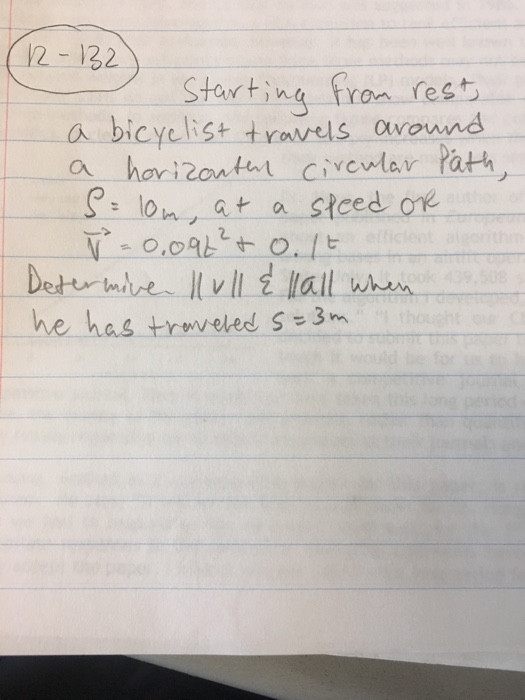 12-132
Starting from rest,
a bicyclist travels around
a horizontal circular Path,
ρ = 10m, at a speed of
V⃗ = 0.09t² + 0.1t
Determine ||v|| & ||a|| when
he has traveled s = 3m